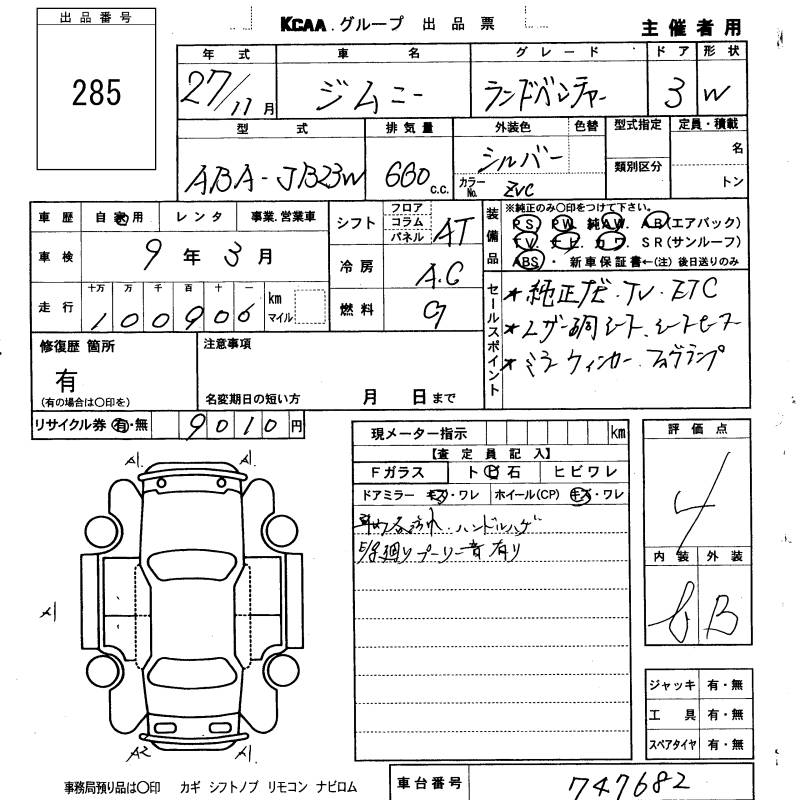 出品番号
285
KCAA グループ 出品票
主催者用
年式 車名 グレード ドア 形状
27/11月 ジムニー ランドベンチャー 3 W
型式 排気量 外装色 色替 型式指定 定員・積載
ABA-JB23W 660 c.c. シルバー 類別区分 名
カラーNo. ZVC トン
車歴 自家用 レンタ 事業.営業車
車検 9年3月
走行 十万 万 千 百 十 一
100906 km マイル
シフト フロア コラム パネル AT
冷房 A.C
燃料 G
装備品 ※純正のみ○印をつけて下さい。
PS. PW. 純AW. AB(エアバック)
TV. ナビ. カワ. SR(サンルーフ)
ABS・ 新車保証書←(注) 後日送りのみ
セールスポイント
★純正ナビ.TV.ETC
★レザー調シート.シートヒーター
★ミラーウィンカー.フォグランプ
修復歴 箇所
有
(有の場合は○印を)
注意事項
名変期日の短い方 月 日まで
リサイクル券 有・無 9010円
現メーター指示 km
【査定員記入】
Fガラス トビ石 ヒビワレ
ドアミラー キズ・ワレ ホイール(CP) キズ・ワレ
ハンドルハゲ
プーリー音有り
評価点
4
内装 外装
B
A1 A1
A1
A2 A1
ジャッキ 有・無
工具 有・無
スペアタイヤ 有・無
事務局預り品は○印 カギ シフトノブ リモコン ナビロム
車台番号 747682